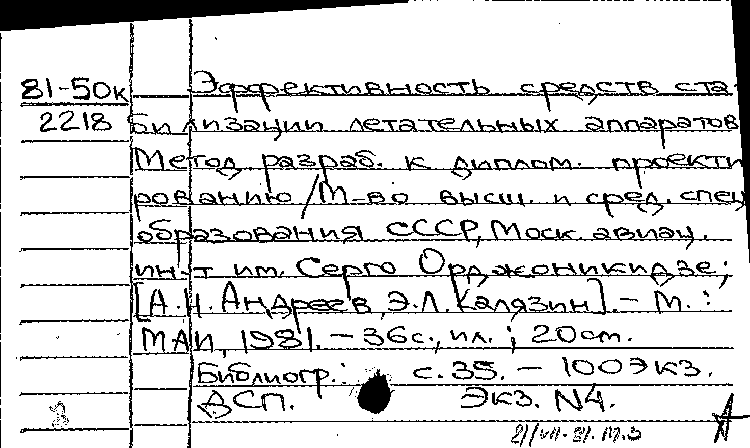 81-50к Эффективность средств ста-
2218 билизации летательных аппаратов
Метод. разраб. к диплом. проекти
рованию / М-во высш. и сред. спец
образования СССР, Моск. авиац.
ин-т им. Серго Орджоникидзе;
[А.Н. Андреев, Э.Л. Калязин]. – М. :
МАИ, 1981. – 36с., ил. ; 20 cm.
Библиогр.: с. 35. – 100 экз.
ДСП. Экз. N4.